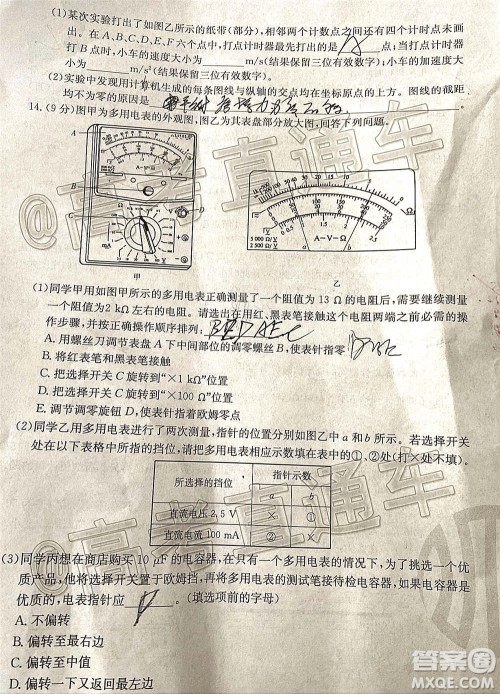 (1)某次实验打出了如图乙所示的纸带(部分),相邻两个计数点之间还有四个计时点未画
出。在A、B、C、D、E、F六个点中,打点计时器最先打出的是 A 点;当打点计时器打
点时,小车的速度大小为 m/s(结果保留三位有效数字),小车的加速度大
小为 m/s²(结果保留三位有效数字)。
(2)实验中发现用计算机生成的每条图线与纵轴的交点均在坐标原点的上方。图线的截距
均不为零的原因是
14.(9分)图甲为多用电表的外观图,图乙为其表盘部分放大图,回答下列问题。
甲
乙
A-V-Ω
(1)同学甲用如图甲所示的多用电表正确测量了一个阻值为13 Ω的电阻后,需要继续测量
一个阻值为2 kΩ左右的电阻。请选出在用红、黑表笔接触这个电阻两端之前必需的操
作步骤,并按正确操作顺序排列:
A.用螺丝刀调节表盘A下中间部位的调零螺丝B,使表针指零
B.将红表笔和黑表笔接触
C.把选择开关C旋转到“×1 kΩ”位置
D.把选择开关C旋转到“×100 Ω”位置
E.调节调零旋钮D,使表针指着欧姆零点
(2)同学乙用多用电表进行了两次测量,指针的位置分别如图乙中a和b所示。若选择开关
处在以下表格中所指的挡位,请把相应的示数填在表中的①、②处(打×处不填)。
所选择的挡位 指针示数
a b
直流电压2.5 V × ①
直流电流100 mA ② ×
(3)同学丙想在商店购买10 μF的电容器,在只有一个多用电表的情况下,为了挑选一个优
质产品,他将选择开关置于欧姆挡,再将多用电表的测试笔接待检电容器,如果电容器是
优质的,电表指针应 D 。(填选项前的字母)
A.不偏转
B.偏转至最右边
C.偏转至中值
D.偏转一下又返回最左边
@高考直通车
答案圈
MXQE.COM